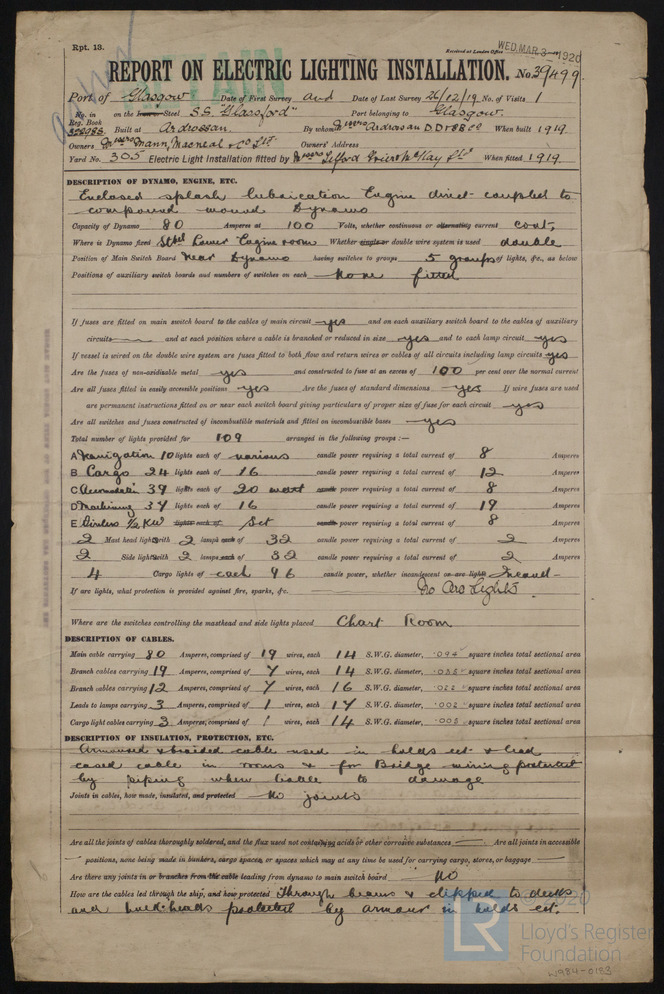 Rpt. 13.
Received at London Office WED. MAR. 3 - 1920
REPORT ON ELECTRIC LIGHTING INSTALLATION. No. 39499
Port of Glasgow Date of First Survey and Date of Last Survey 26/12/19 No. of Visits 1
No. in Reg. Book on the Iron or Steel S.S. "Glassford" Port belonging to Glasgow.
Built at Ardrossan. By whom Messrs Ardrossan D.D & S B Co When built 1919.
Owners Messrs Mann, Macneal & Co Ltd Owners' Address
Yard No. 305 Electric Light Installation fitted by Messrs Telford Grier & McKay Ltd When fitted 1919
DESCRIPTION OF DYNAMO, ENGINE, ETC.
Enclosed splash lubrication Engine direct coupled to
compound wound Dynamo
Capacity of Dynamo 80 Amperes at 100 Volts, whether continuous or alternating current cont,
Where is Dynamo fixed Lower Engine room Whether single or double wire system is used double
Position of Main Switch Board Near Dynamo having switches to groups 5 groups of lights, &c., as below
Positions of auxiliary switch boards and numbers of switches on each None fitted
If fuses are fitted on main switch board to the cables of main circuit yes and on each auxiliary switch board to the cables of auxiliary
circuits and at each position where a cable is branched or reduced in size yes and to each lamp circuit yes
If vessel is wired on the double wire system are fuses fitted to both flow and return wires or cables of all circuits including lamp circuits yes
Are the fuses of non-oxidizable metal yes and constructed to fuse at an excess of 100 per cent over the normal current
Are all fuses fitted in easily accessible positions yes Are the fuses of standard dimensions yes If wire fuses are used
are permanent instructions fitted on or near each switch board giving particulars of proper size of fuse for each circuit yes
Are all switches and fuses constructed of incombustible materials and fitted on incombustible bases yes
Total number of lights provided for 109 arranged in the following groups :—
A Navigation 10 lights each of various candle power requiring a total current of 8 Amperes
B Cargo 24 lights each of 16 candle power requiring a total current of 12 Amperes
C Accomodatn 39 lights each of 20 watt candle power requiring a total current of 8 Amperes
D Machinery 34 lights each of 16 candle power requiring a total current of 19 Amperes
E Wireless 1/2 KW lights each of Set candle power requiring a total current of 8 Amperes
2 Mast head light with 2 lamps each of 32 candle power requiring a total current of 2 Amperes
2 Side light with 2 lamps each of 32 candle power requiring a total current of 2 Amperes
4 Cargo lights of each 96 candle power, whether incandescent or arc lights Incand-
If arc lights, what protection is provided against fire, sparks, &c. No Arc Lights.
Where are the switches controlling the masthead and side lights placed Chart Room
DESCRIPTION OF CABLES.
Main cable carrying 80 Amperes, comprised of 19 wires, each 14 S.W.G. diameter, .094 square inches total sectional area
Branch cables carrying 19 Amperes, comprised of 7 wires, each 14 S.W.G. diameter, .035 square inches total sectional area
Branch cables carrying 12 Amperes, comprised of 7 wires, each 16 S.W.G. diameter, .022 square inches total sectional area
Leads to lamps carrying 3 Amperes, comprised of 1 wires, each 17 S.W.G. diameter, .002 square inches total sectional area
Cargo light cables carrying 3 Amperes, comprised of 1 wires, each 14 S.W.G. diameter, .005 square inches total sectional area
DESCRIPTION OF INSULATION, PROTECTION, ETC.
Armoured & braided cable used in holds ect. & lead
cased cable in rooms & for Bridge wiring protected
by piping where liable to damage
Joints in cables, how made, insulated, and protected No joints
Are all the joints of cables thoroughly soldered, and the flux used not containing acids or other corrosive substances Are all joints in accessible
positions, none being made in bunkers, cargo spaces, or spaces which may at any time be used for carrying cargo, stores, or baggage
Are there any joints in or branches from the cable leading from dynamo to main switch board No
How are the cables led through the ship, and how protected Through beams & clipped to decks
and bulkheads protected by armour in holds ect.
© 2020
LR
Lloyd's Register
Foundation
W984-0183